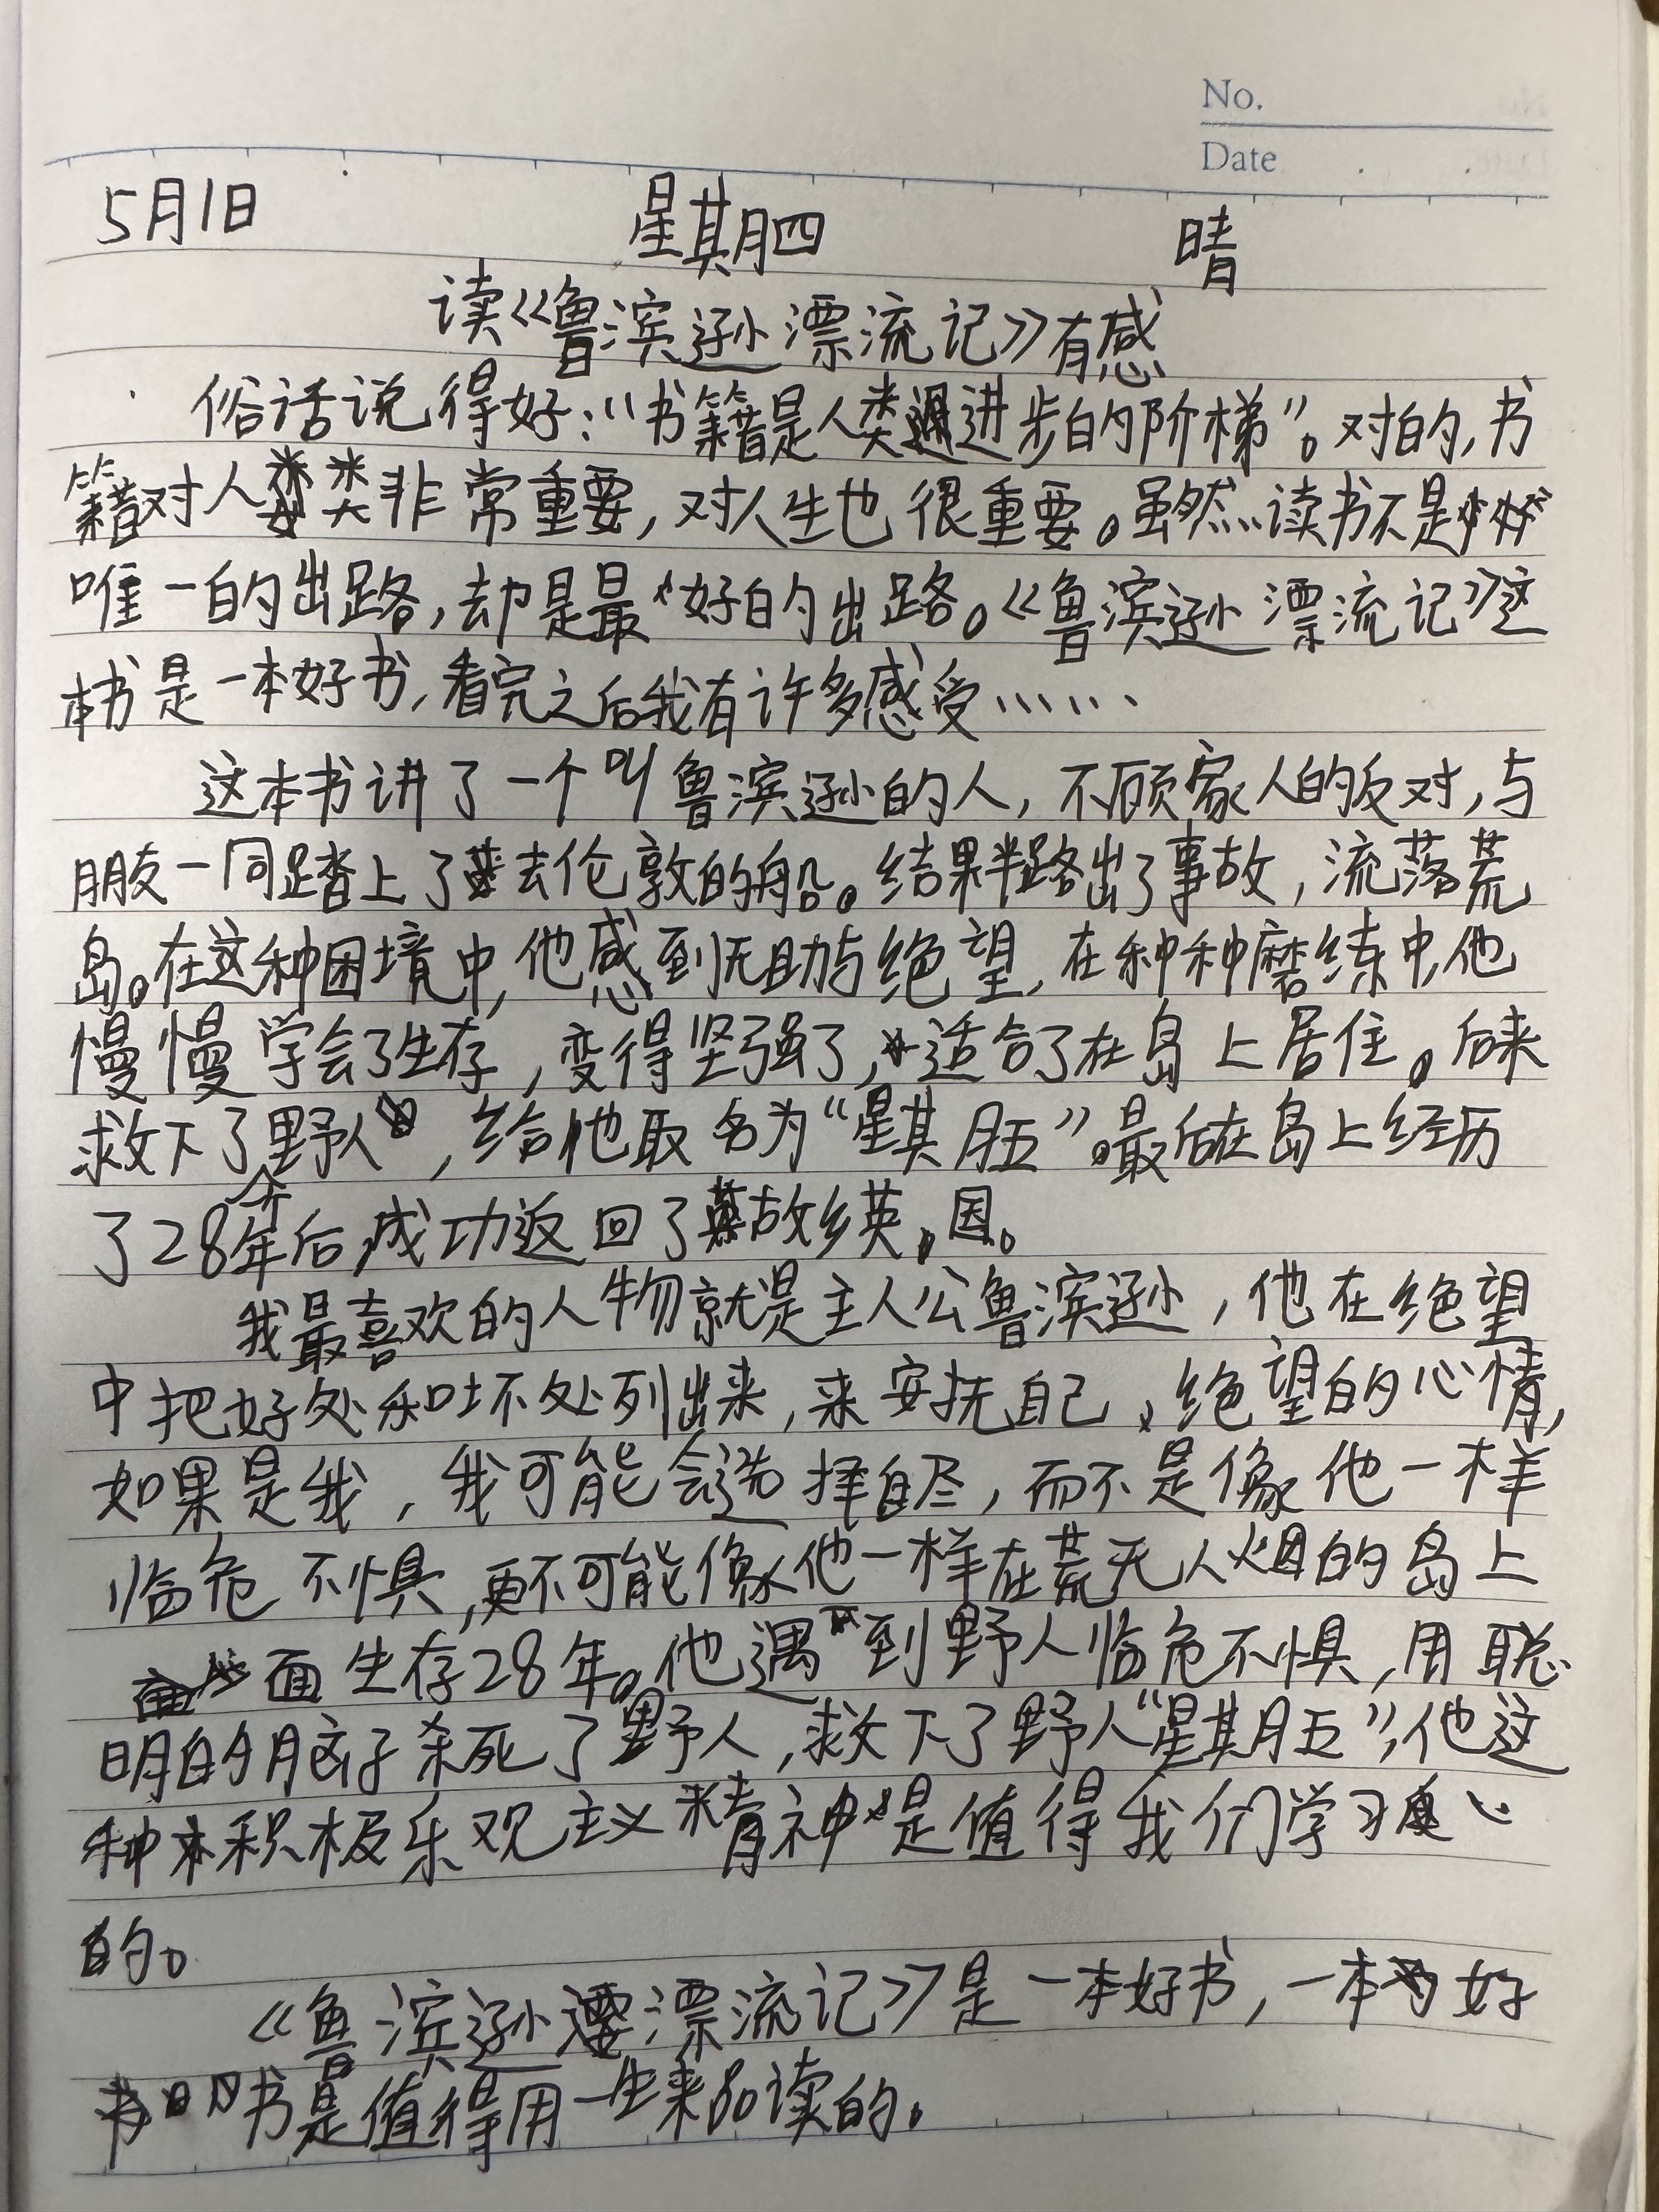 No.
Date
5月1日 星期四 晴
读《鲁滨逊漂流记》有感
俗话说得好:“书籍是人类进步的阶梯”。对的,书
籍对人类非常重要,对人生也很重要。虽然读书不是
唯一的出路,却是最好的出路。《鲁滨逊漂流记》这
本书是一本好书,看完之后我有许多感受……
这本书讲了一个叫鲁滨逊的人,不顾家人的反对,与
朋友一同踏上了去伦敦的船。结果半路出了事故,流落荒
岛。在这种困境中,他感到无助与绝望,在种种磨练中,他
慢慢学会了生存,变得坚强了,适合了在岛上居住。后来
救下了野人,给他取名为“星期五”。最后在岛上经历
了28年后,成功返回了故乡英国。
我最喜欢的人物就是主人公鲁滨逊,他在绝望
中把好处和坏处列出来,来安抚自己、绝望的心情,
如果是我,我可能会选择自尽,而不是像他一样
临危不惧,更不可能像他一样在荒无人烟的岛上
面生存28年。他遇到野人临危不惧,用聪
明的脑子杀死了野人,救下了野人“星期五”,他这
种积极乐观主义精神是值得我们学习
的。
《鲁滨逊漂流记》是一本好书,一本好
书是值得用一生来品读的。